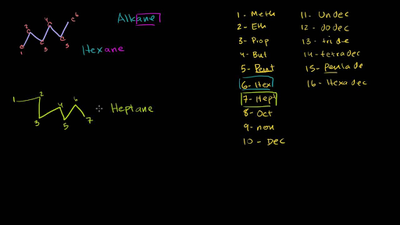 Alkane
Hexane
1 2 3 4 5 6
1 2 3 4 5 6 7
Heptane
1 - Meth
2 - Eth
3 - Prop
4 - But
5 - Pent
6 - Hex
7 - Hept
8 - Oct
9 - non
10 - Dec
11 - Undec
12 - dodec
13 - tridec
14 - tetradec
15 - Pentade
16 - Hexadec